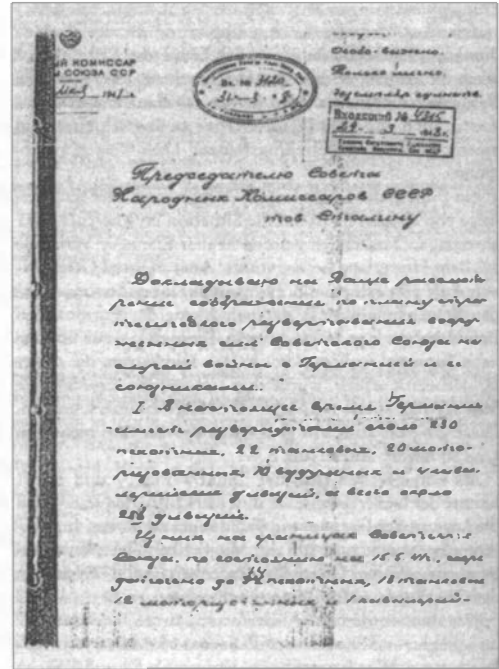 ЫЙ КОМИССАР
СОЮЗА ССР
Особо важно.
Только лично.
Входящий №
Председателю Совета
Народных Комиссаров СССР
тов Сталину
Докладываю на Ваше рассмот
рение соображения по плану стра
тегического развертывания воору
женных сил Советского Союза на
случай войны с Германией и ее
союзниками..
I В настоящее время Германия
имеет развернутыми около 230
пехотных, 22 танковых, 20 мото-
ризованных, 10 воздушных и 4 кава
лерийских дивизий, а всего около
дивизий.
Из них на границах Советского
Союза, по состоянию на 15.5.41г., сосре
доточено до пехотных, 13 танковых
12 моторизованных и 1 кавалерий-